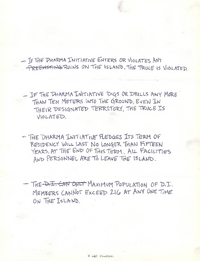 - IF THE DHARMA INITIATIVE ENTERS OR VIOLATES ANY
RUINS ON THE ISLAND, THE TRUCE IS VIOLATED.
- IF THE DHARMA INITIATIVE DIGS OR DRILLS ANY MORE
THAN TEN METERS INTO THE GROUND, EVEN IN
THEIR DESIGNATED TERRITORY, THE TRUCE IS
VIOLATED.
- THE DHARMA INITIATIVE PLEDGES ITS TERM OF
RESIDENCY WILL LAST NO LONGER THAN FIFTEEN
YEARS. AT THE END OF THIS TERM, ALL FACILITIES
AND PERSONNEL ARE TO LEAVE THE ISLAND.
- THE D.I. CAN ONLY MAXIMUM POPULATION OF D.I.
MEMBERS CANNOT EXCEED 216 AT ANY ONE TIME
ON THE ISLAND.